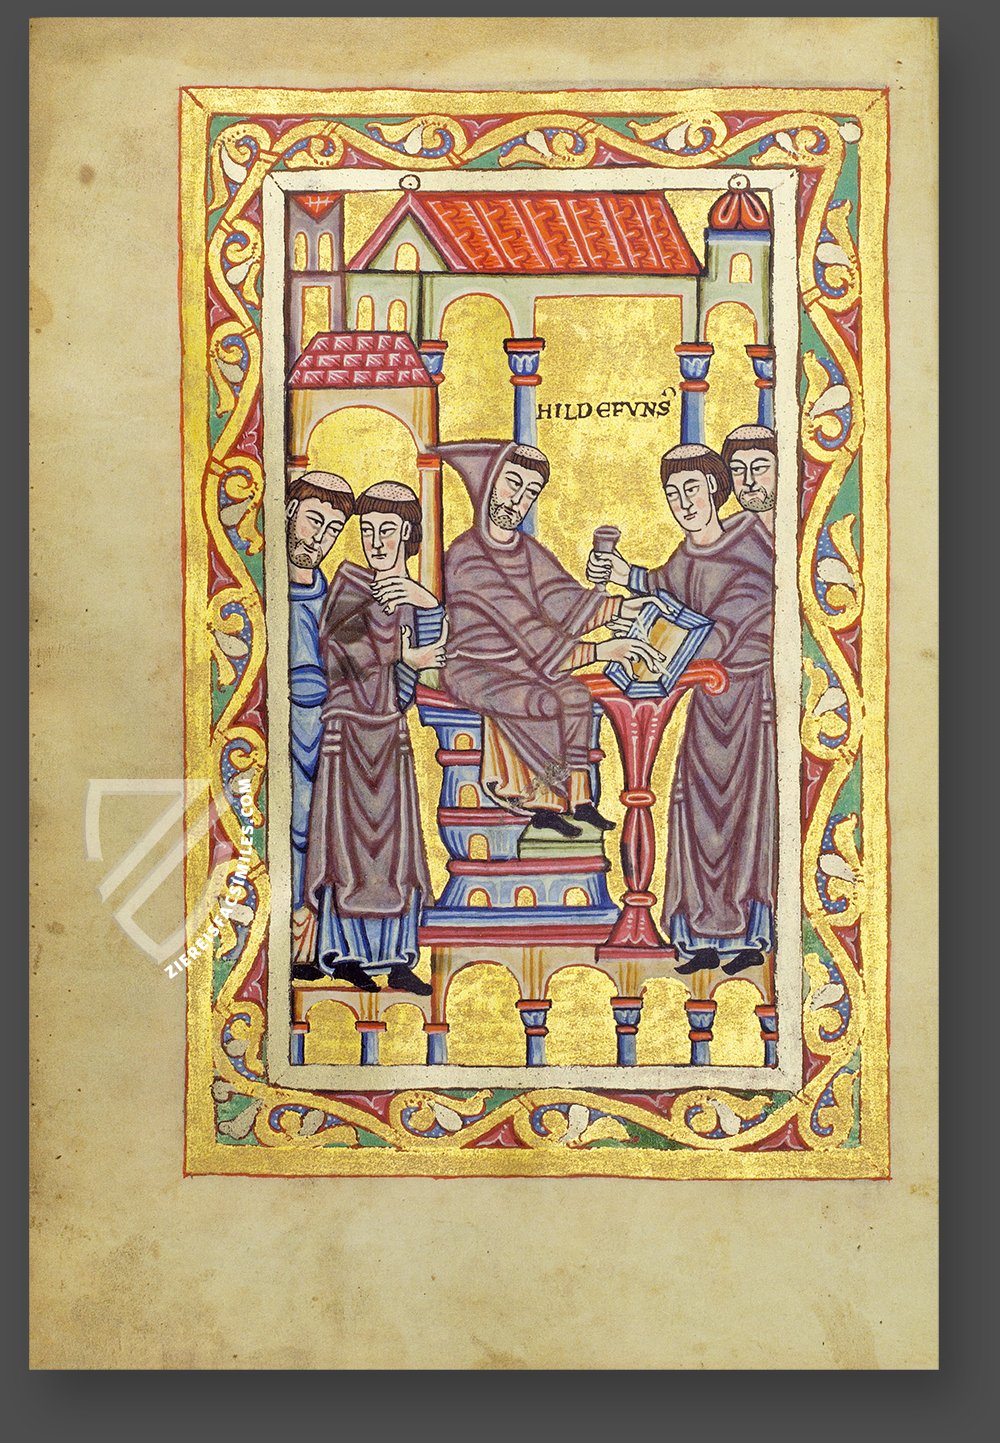 HILDEFVNS᾿
ZIEREISFACSIMILES.COM